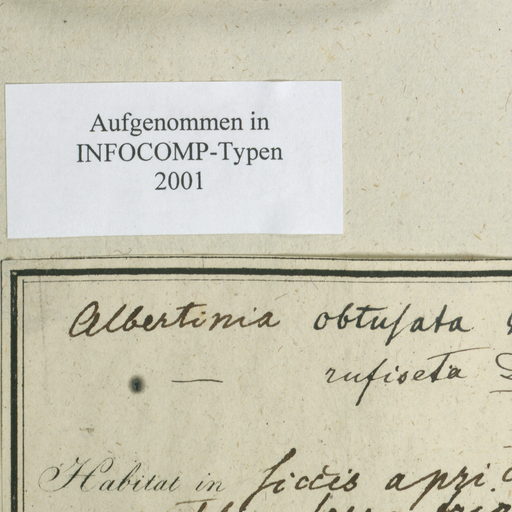 Aufgenommen in
INFOCOMP-Typen
2001
Albertinia obtusata
— rufiseta
Habitat in siccis apri